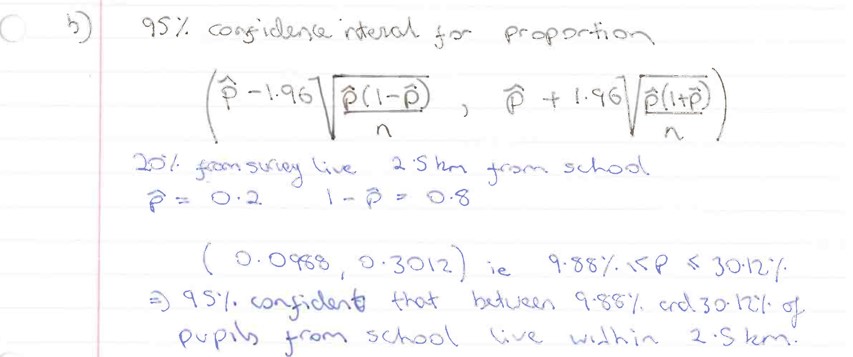 b) 95% confidence interal for proportion
(p̂ - 1.96√(p̂(1-p̂)/n) , p̂ + 1.96√(p̂(1+p̂)/n))
20% from survey live 2.5km from school
p̂ = 0.2 1 - p̂ = 0.8
(0.0988, 0.3012) ie 9.88% ≤ P ≤ 30.12%
⇒ 95% confident that between 9.88% and 30.12% of
pupils from school live within 2.5km.